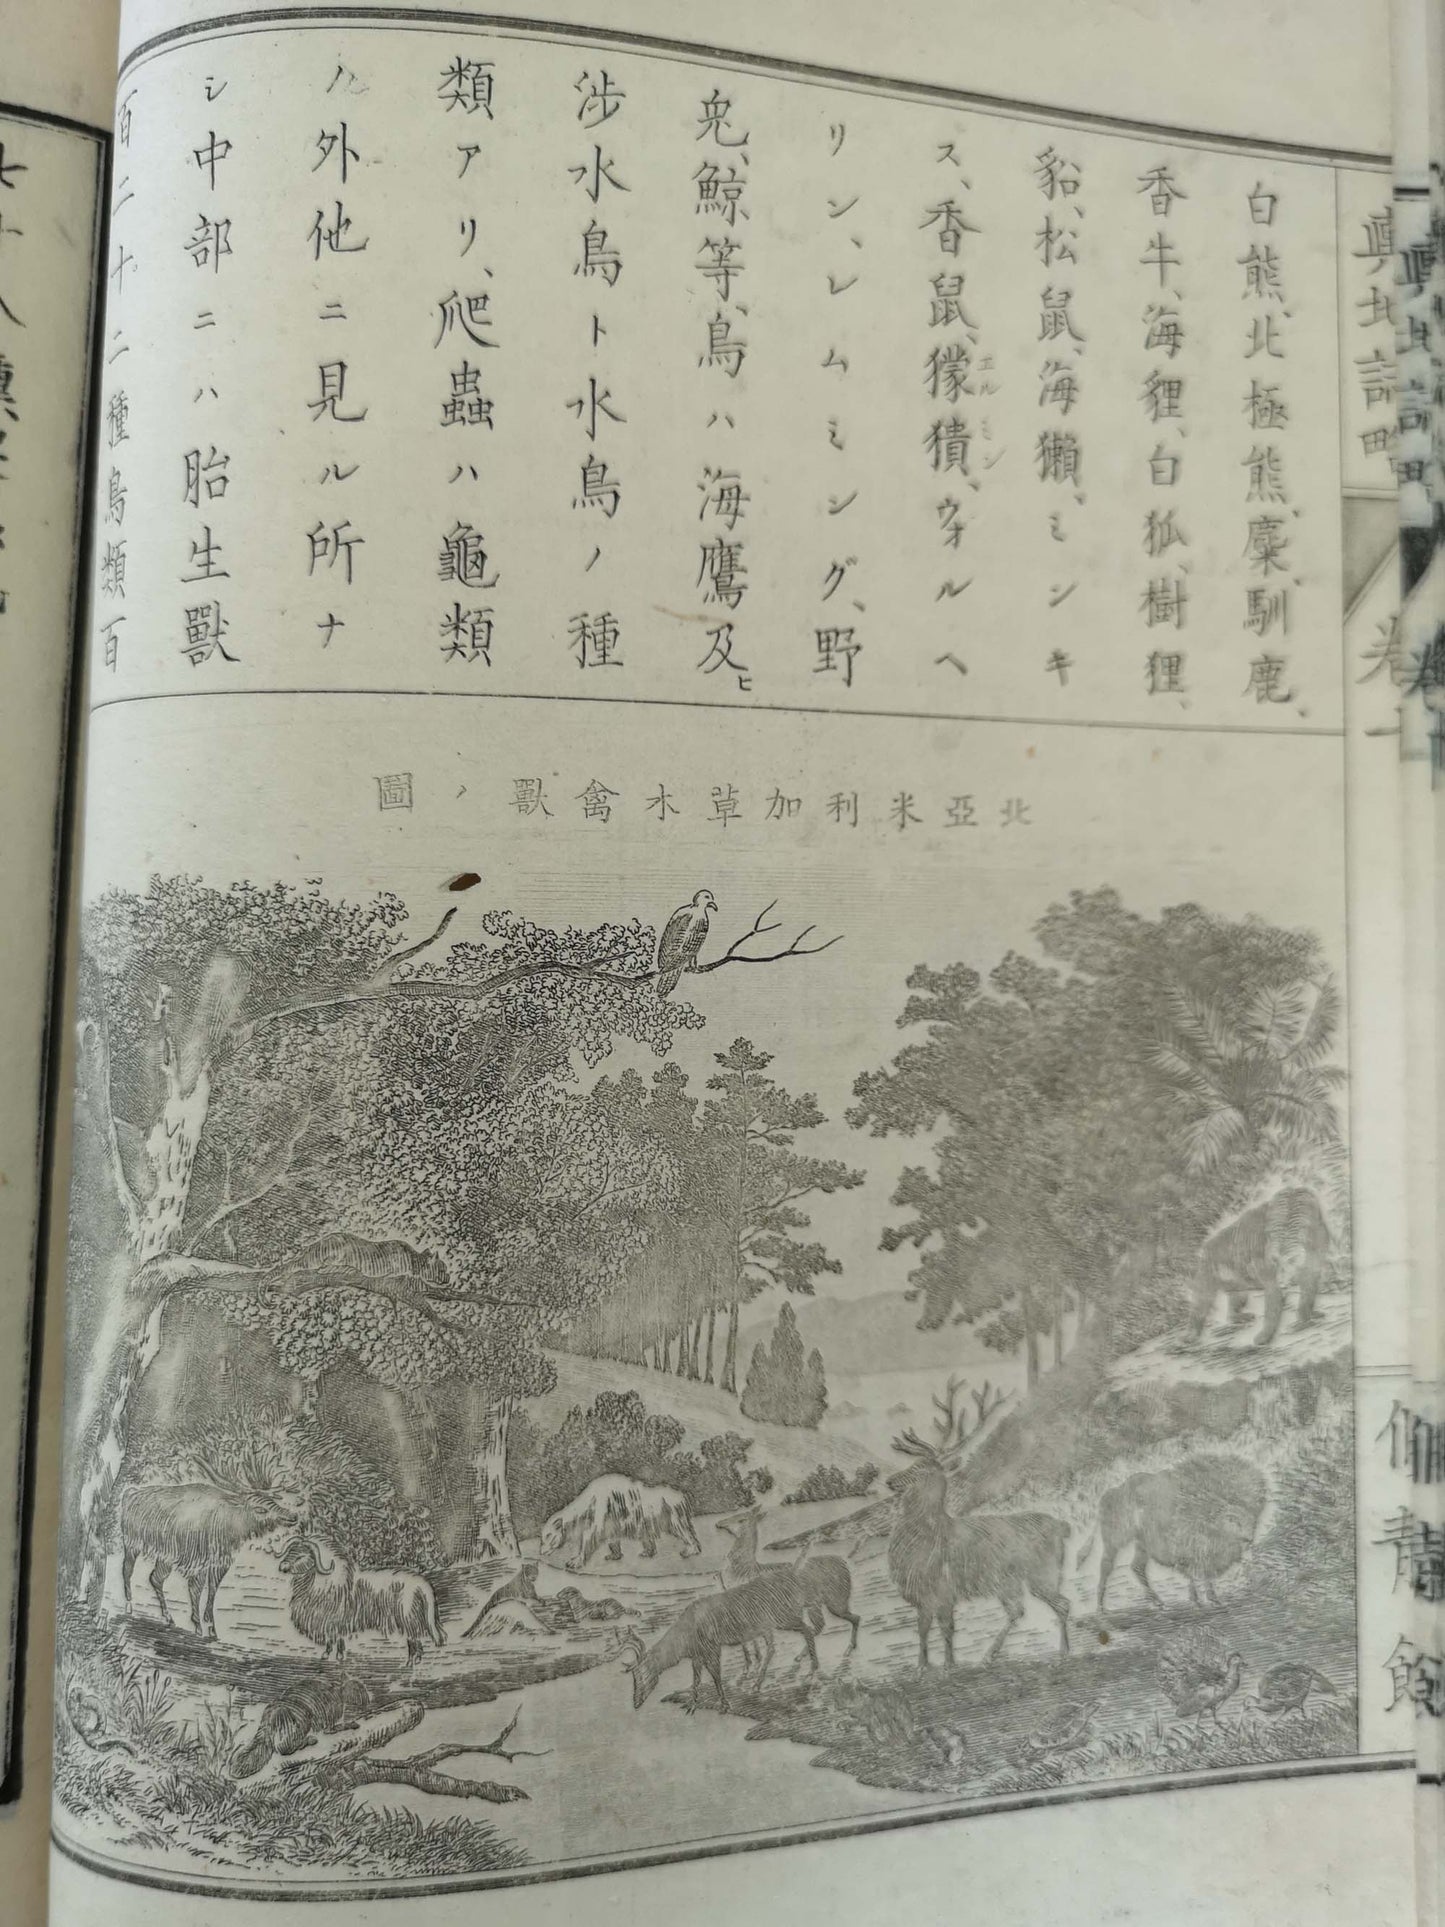 白熊、北極熊、麋、馴鹿、
香牛、海貍、白狐、樹狸、
貂、松鼠、海獺、ミンキ
ス、香鼠、獴獚、ウオルヘ
エルミン
リン、レムミング、野
兎、鯨等、鳥ハ海鷹及ヒ
渉水鳥ト水鳥ノ種
類アリ、爬蟲ハ龜類
ノ外他ニ見ル所ナ
シ中部ニハ胎生獸
百二十二種鳥類百
北亞米利加草木禽獸ノ圖
輿地誌略
卷十